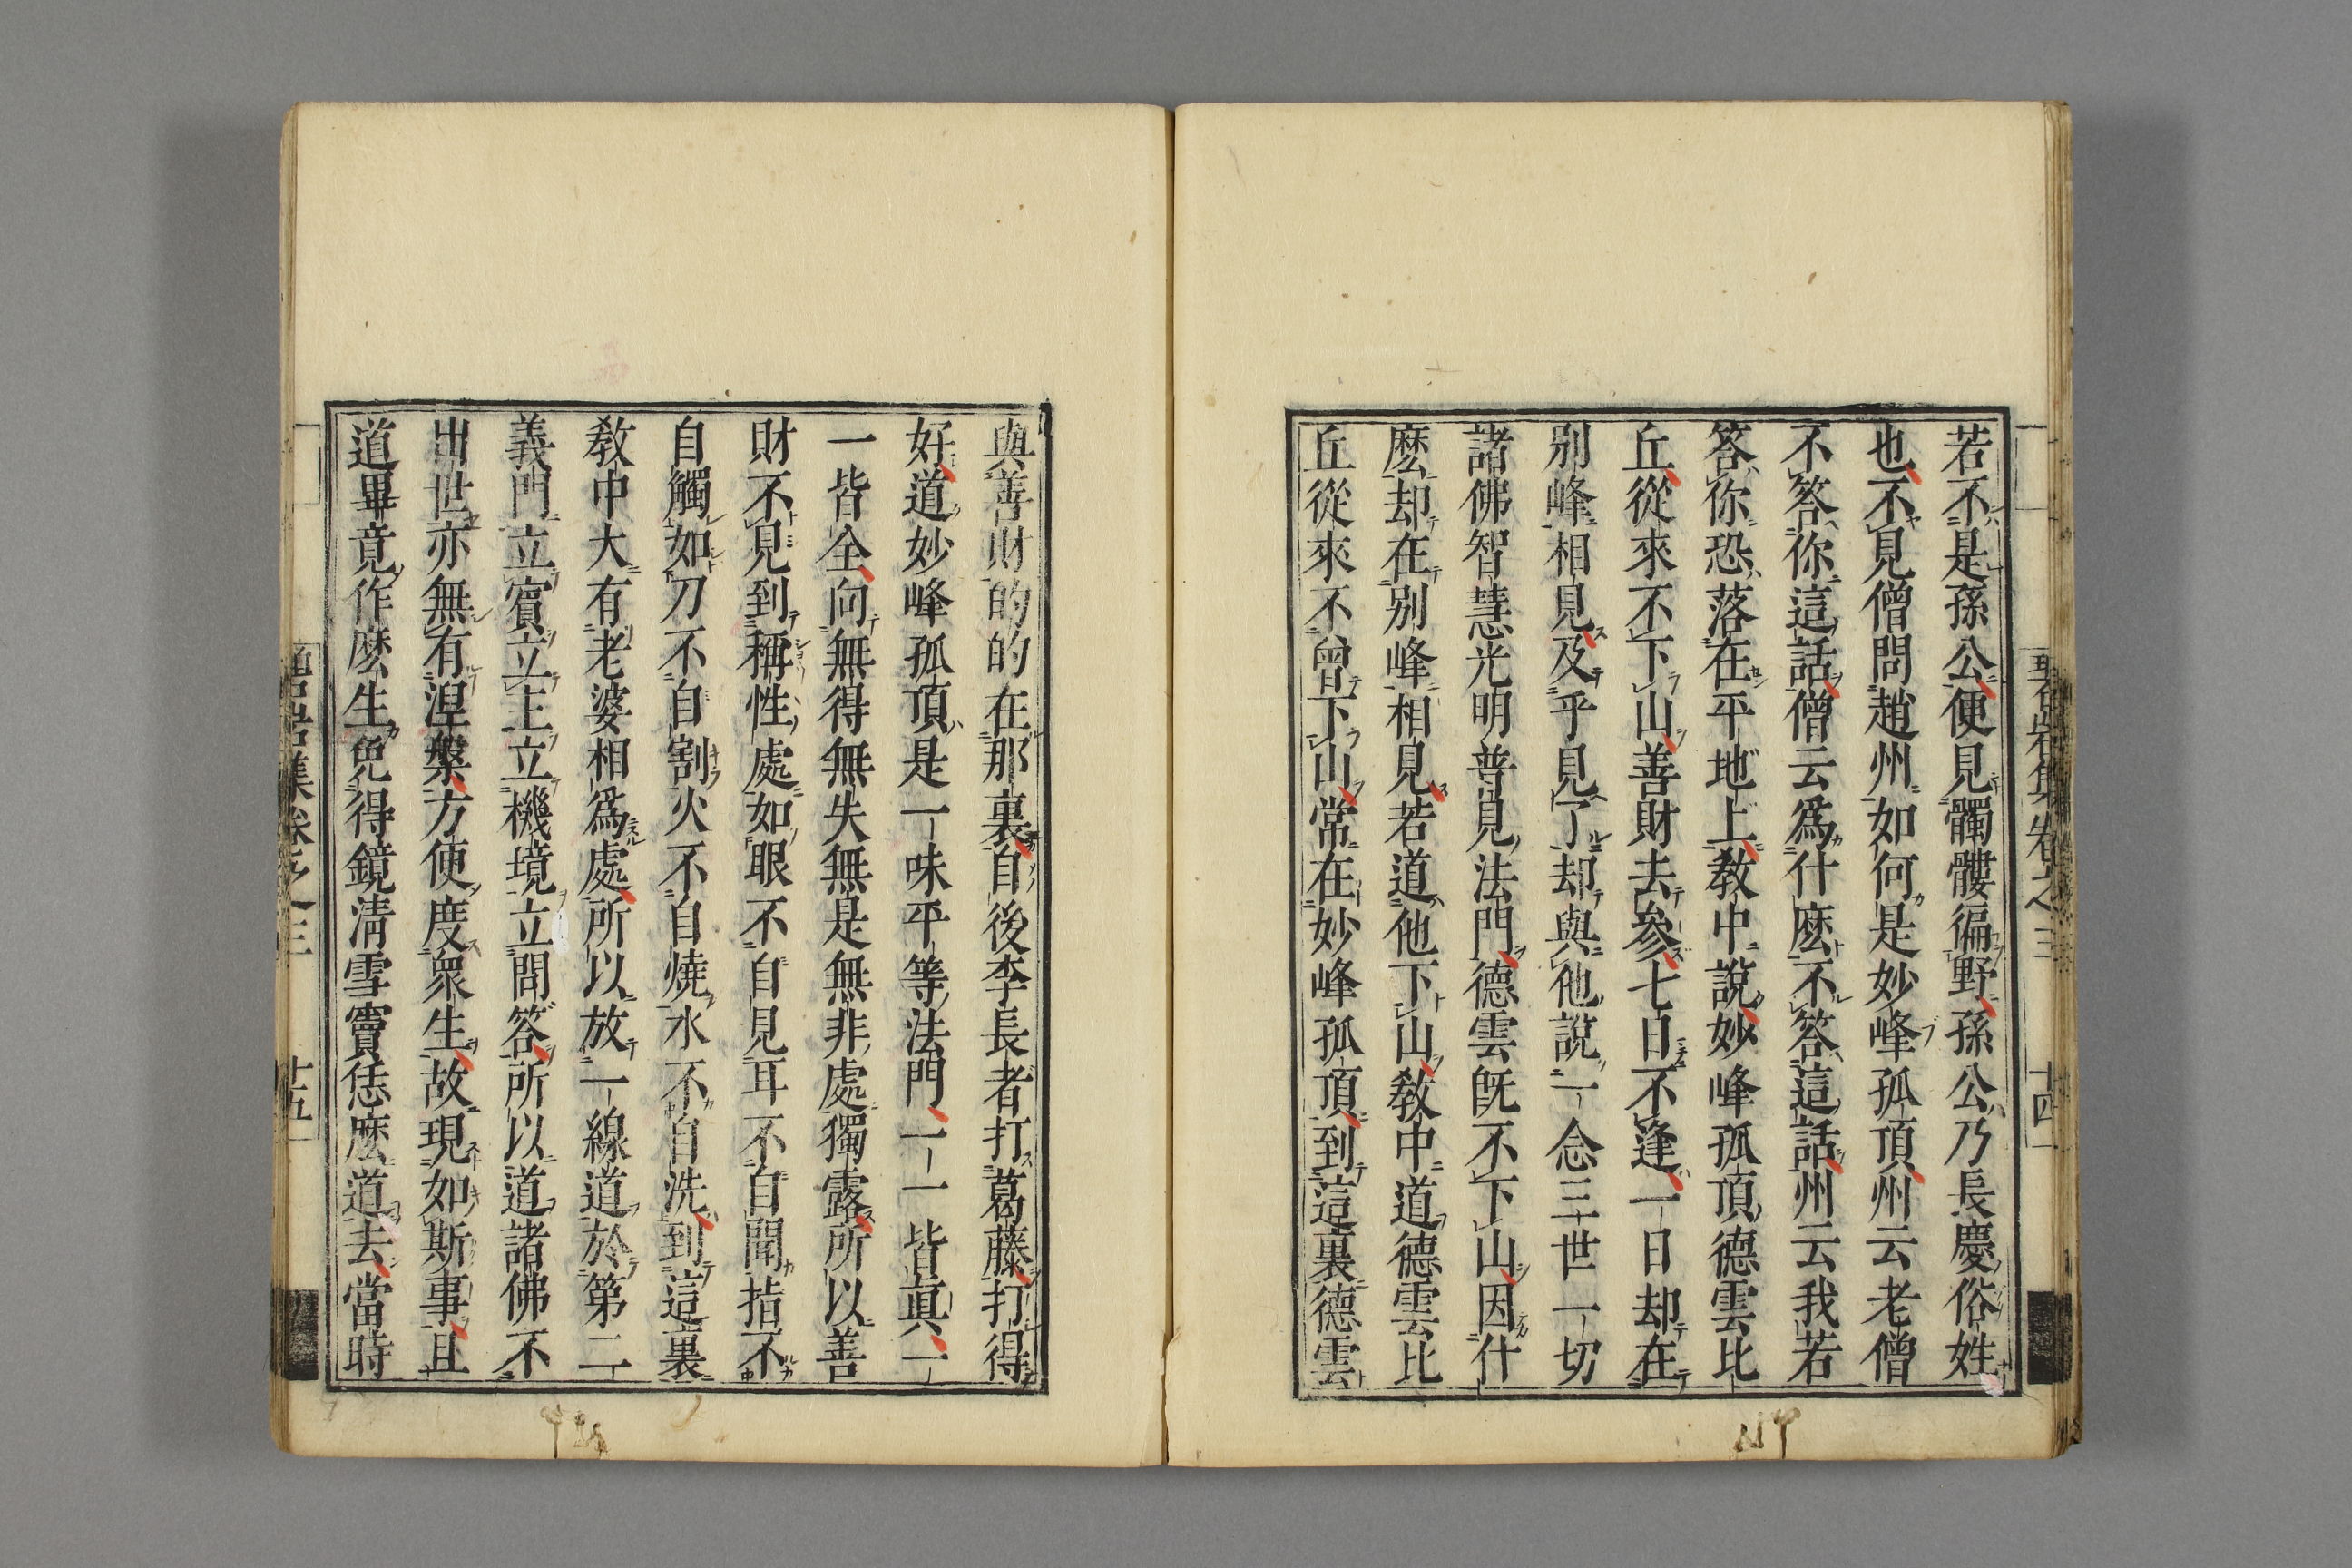 若不是孫公便見髑髏徧野孫公乃長慶俗姓
也不見僧問趙州如何是妙峰孤頂州云老僧
不答你這話僧云爲什麽不答這話州云我若
答你恐落在平地上教中說妙峰孤頂德雲比
丘從來不下山善財去參七日不逢一日却在
別峰相見及乎見了却與他說一念三世一切
諸佛智慧光明普見法門德雲既不下山因什
麽却在別峰相見若道他下山教中道德雲比
丘從來不曾下山常在妙峰孤頂到這裏德雲
碧岩集卷之三 十四
與善財的的在那裏自後李長者打葛藤打得
好道妙峰孤頂是一味平等法門一一皆眞一
一皆全向無得無失無是無非處獨露所以善
財不見到稱性處如眼不自見耳不自聞指不
自觸如刀不自割火不自燒水不自洗到這裏
教中大有老婆相爲處所以放一線道於第二
義門立賓立主立機境立問答所以道諸佛不
出世亦無有涅槃方便度衆生故現如斯事且
道畢竟作麽生免得鏡淸雪竇恁麽道去當時
碧岩集卷之三 十五